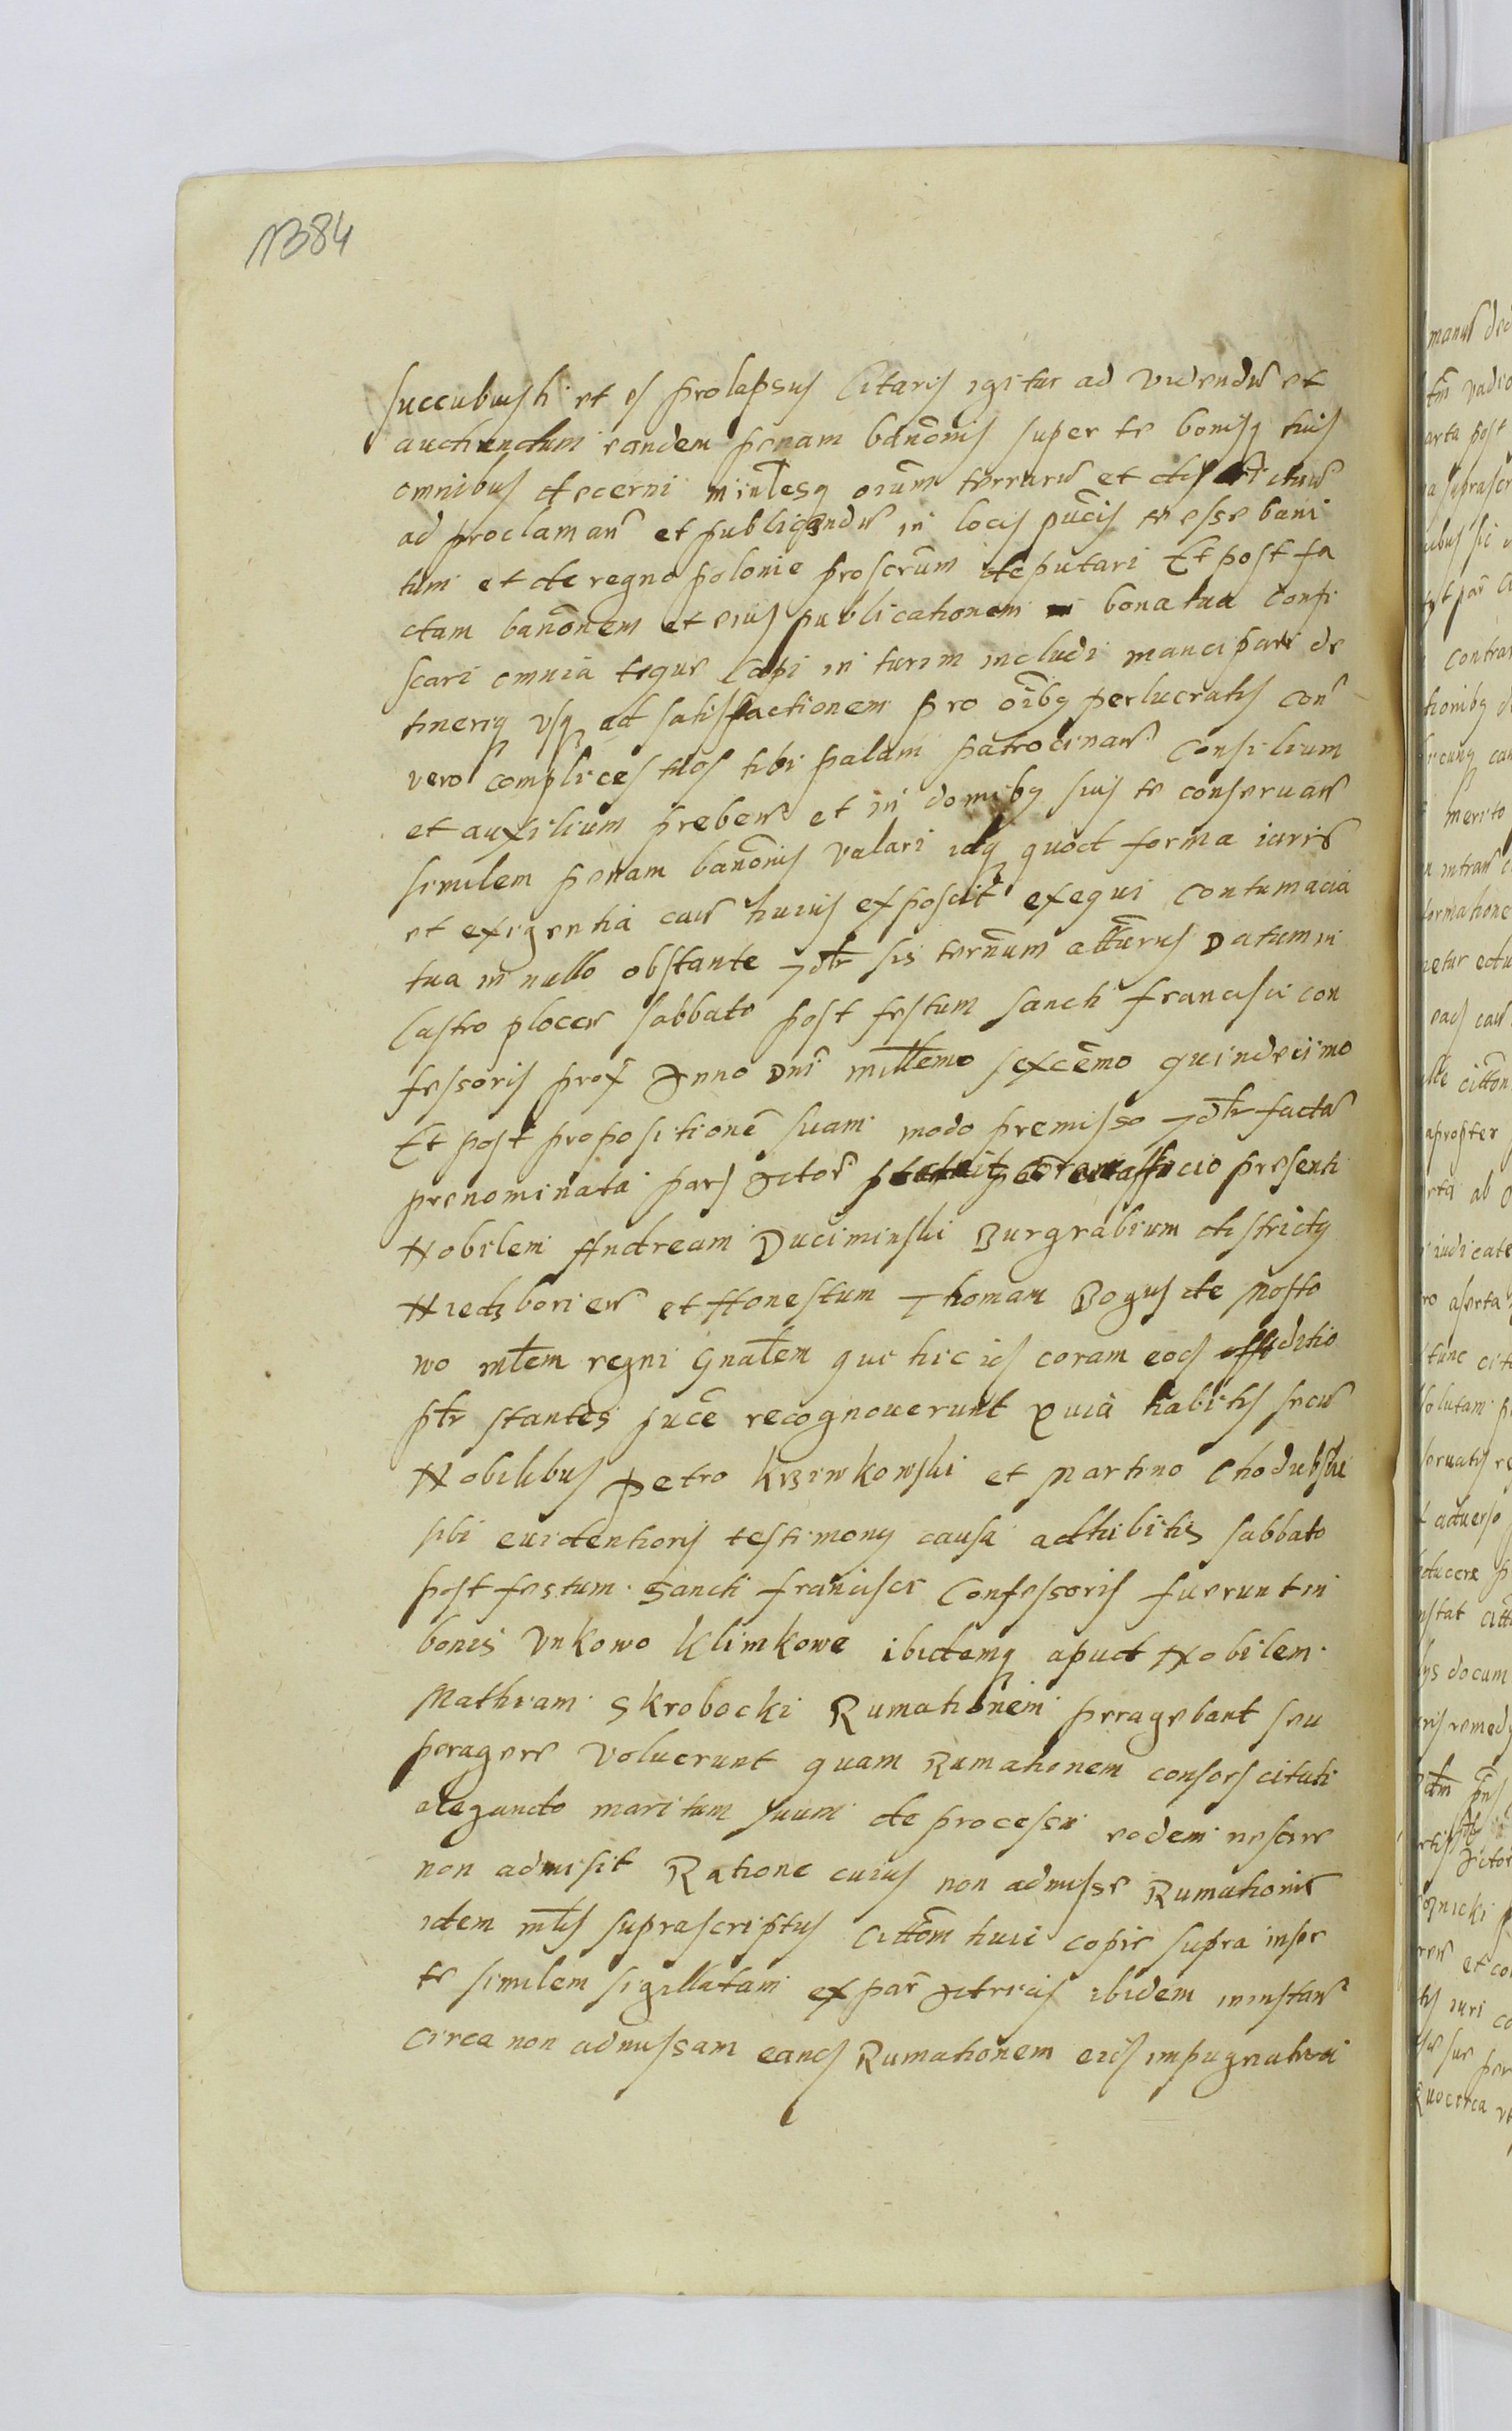 1384
succubuisti et es prolapsus Citaris igitur ad videndu͂ et
audiendum eandem penam bānonis super te bonisq tuis
omnibus decerni minlesq oium terraru͂ et districtuu͂
ad proclaman͂ et publicandu͂ in locis pucis te esse bani
tum et de regno polonie proscrum deputari Et post fa
ctam banōnem et eius publicationem bona tua confi
scari omnia teque capi in turim includi mancipari de
tineriq usq ad satisfactionem pro oibq perlucratis Con͂
vero complices tuos tibi palam patrocinan͂ consilium
et auxilium preben͂ et in domibq suis te conseruan͂
similem penam banonis valari idq quod forma iuris
et exigentia caus huius exposcit exequi contumacia
tua in nullo obstante sis ternum atturus Datum in
Castro plocen͂ sabbato post festum sancti francisci con
fessoris prox Anno Dni millemo sexcemo quindecimo
Et post propositione͂ suam modo premisso factas
prenominata pars Actor͂ officio presenti
Nobilem Andream Duciminski Burgrabium districtq
Niedzborien͂ et Honestum Thomam Bogus de Mosto
wo mlem regni Gnalem qui hic ids coram eods officio
ptr stantes puce recognouerunt Quia habitis secu͂
Nobilibus Petro Krzywkowski et Martino Chodubski
sibi euidentioris testimony causa adhibitis sabbato
post festum Sancti francisci Confessoris fuerunt in
bonis Unkowo Klimkowe ibidemq apud Nobilem
Mathiam Skrobocki Rumationem peragebant seu
peragere voluerunt quam Rumationem consors citati
alegando maritum suum de processu eodem nescire
non admisit Ratione cuius non admisse Rumationis
idem mlis suprascriptus Cittom huic copie supra inser
te similem sigillatam ex par͂ Actricis ibidem ininstan͂
circa non admissam eands Rumationem eids impugnatiua